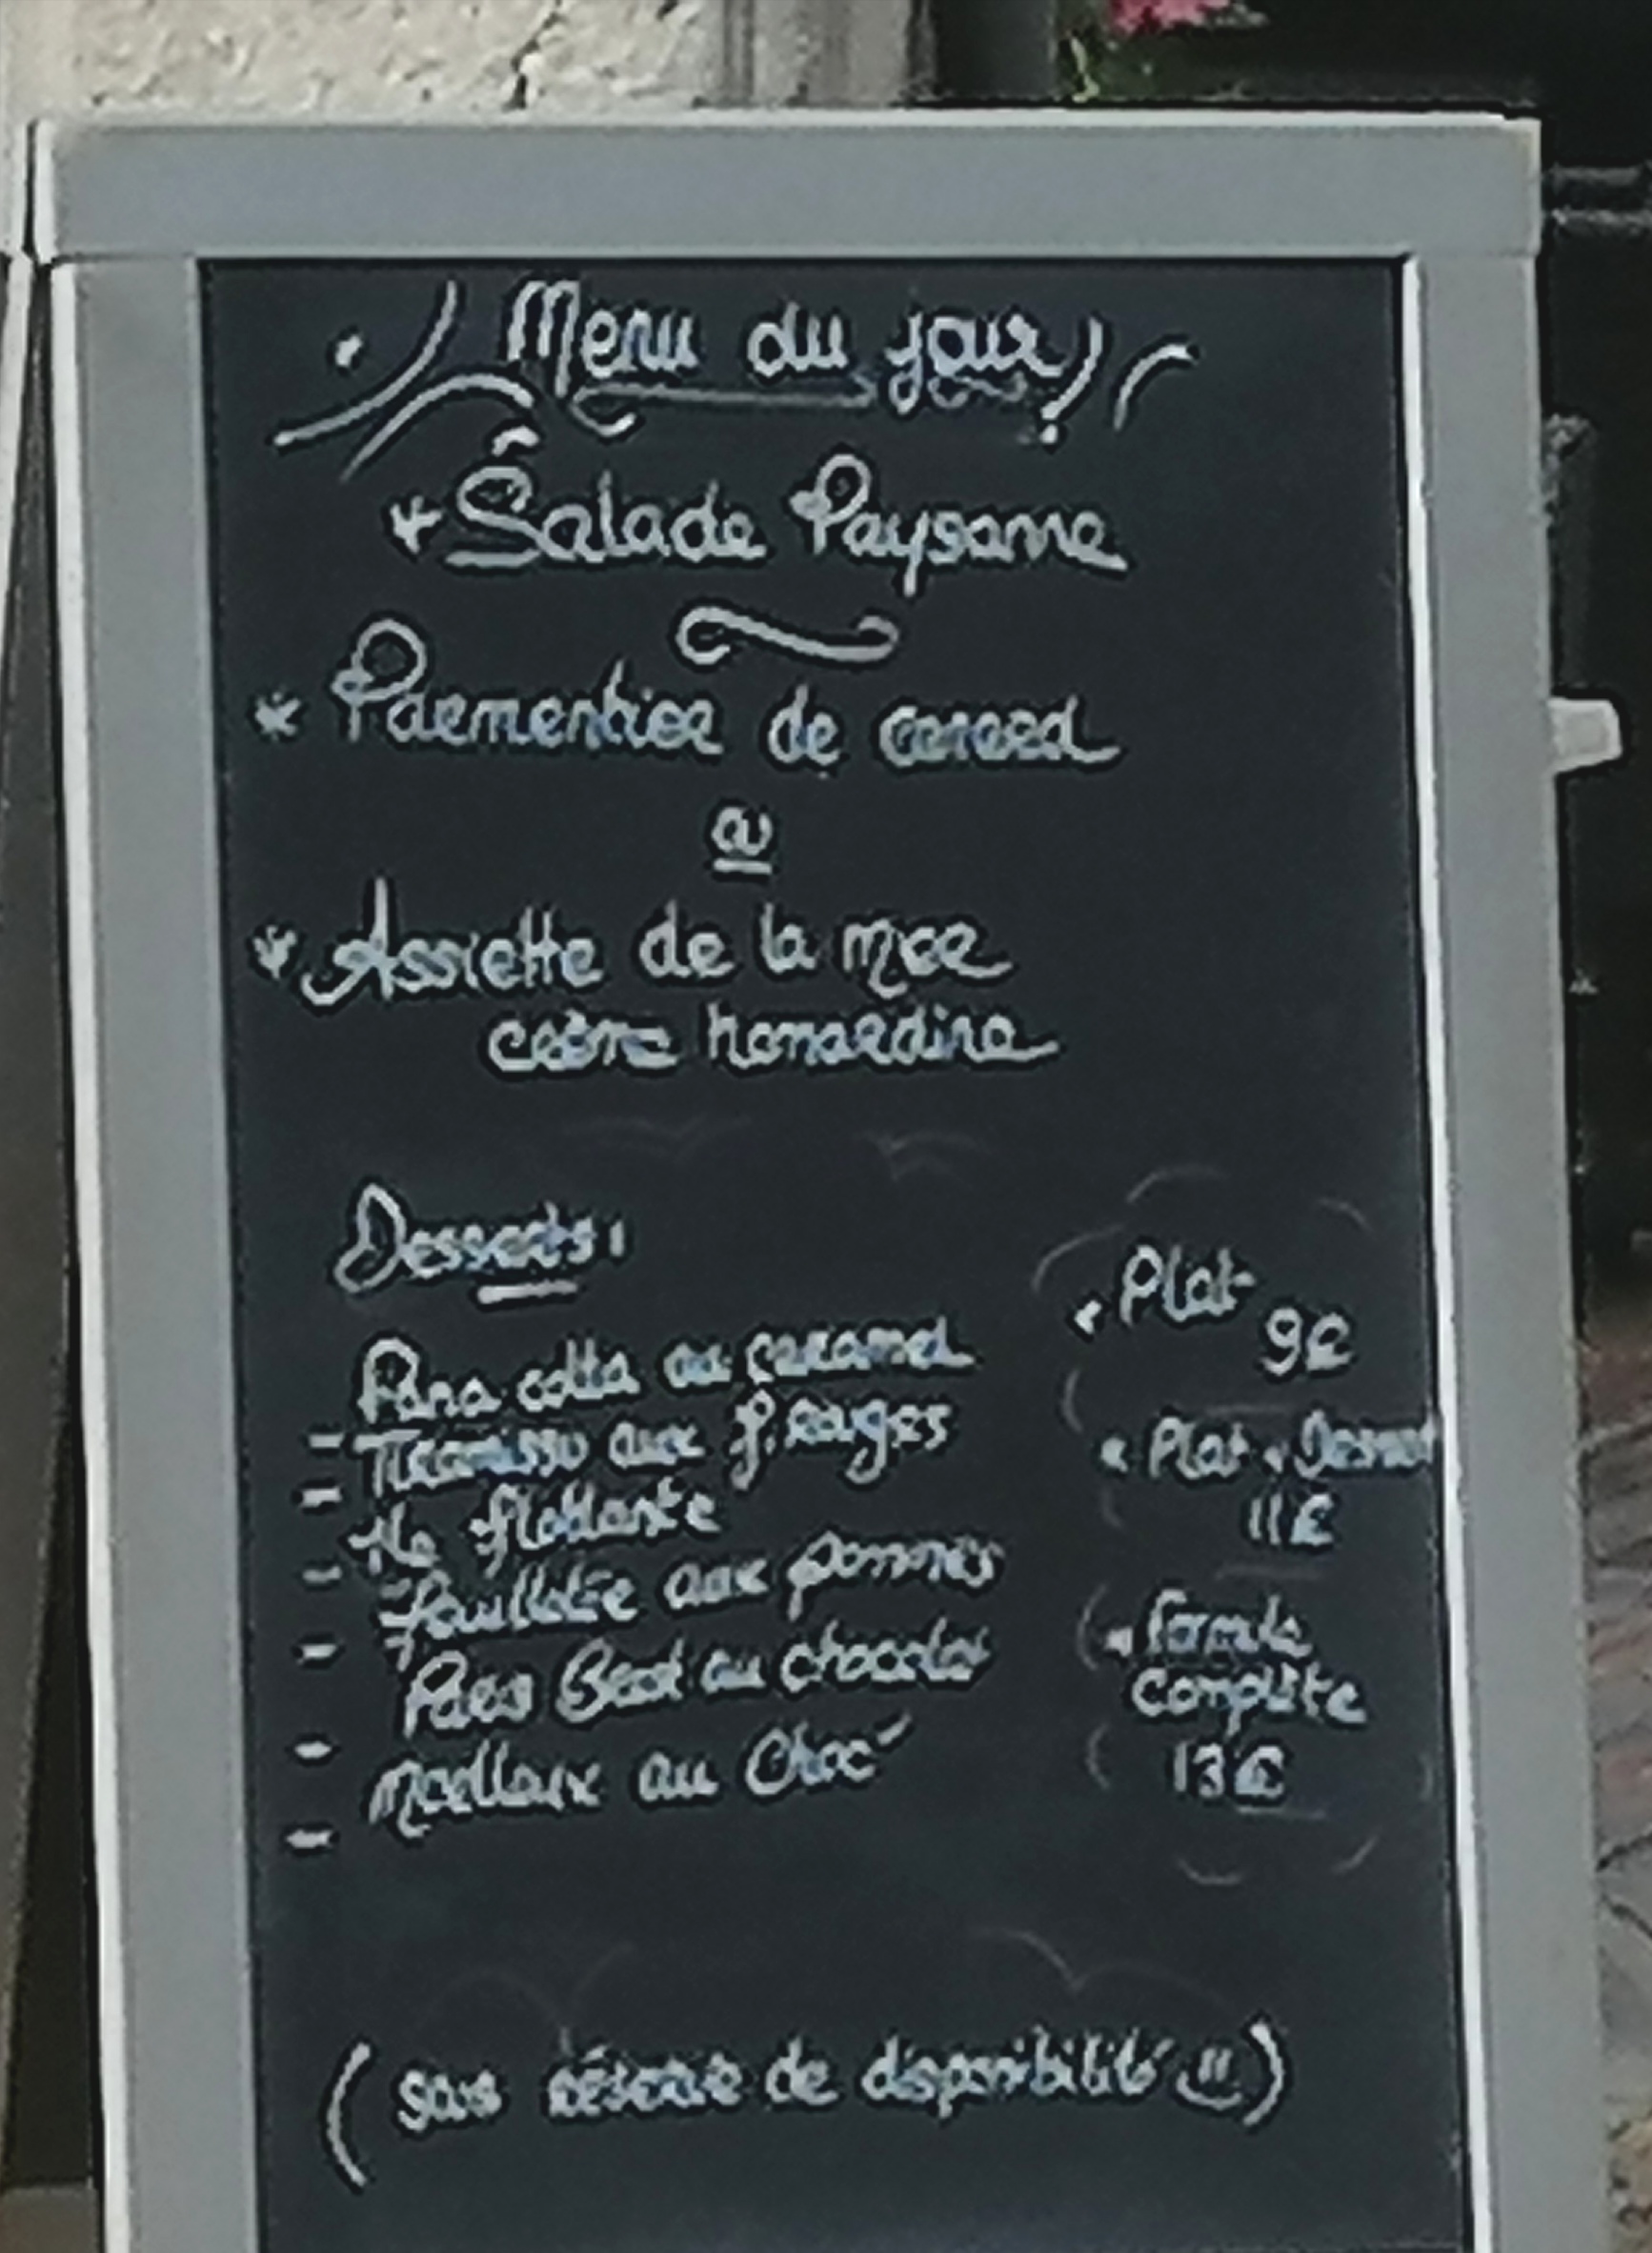 Menu du jour
* Salade Paysanne
* Parmentier de canard
ou
* Assiette de la mer
crème homardine
Desserts :
Pana cotta au caramel
- Tiramissu aux f. rouges
- Ile flottante
- feuilletée aux pommes
- Paris Brest au chocolat
- Moelleux au Choc'
-
• Plat
9€
• Plat + Dessert
11€
• Formule
Complète
13€
(sous réserve de disponibilité)